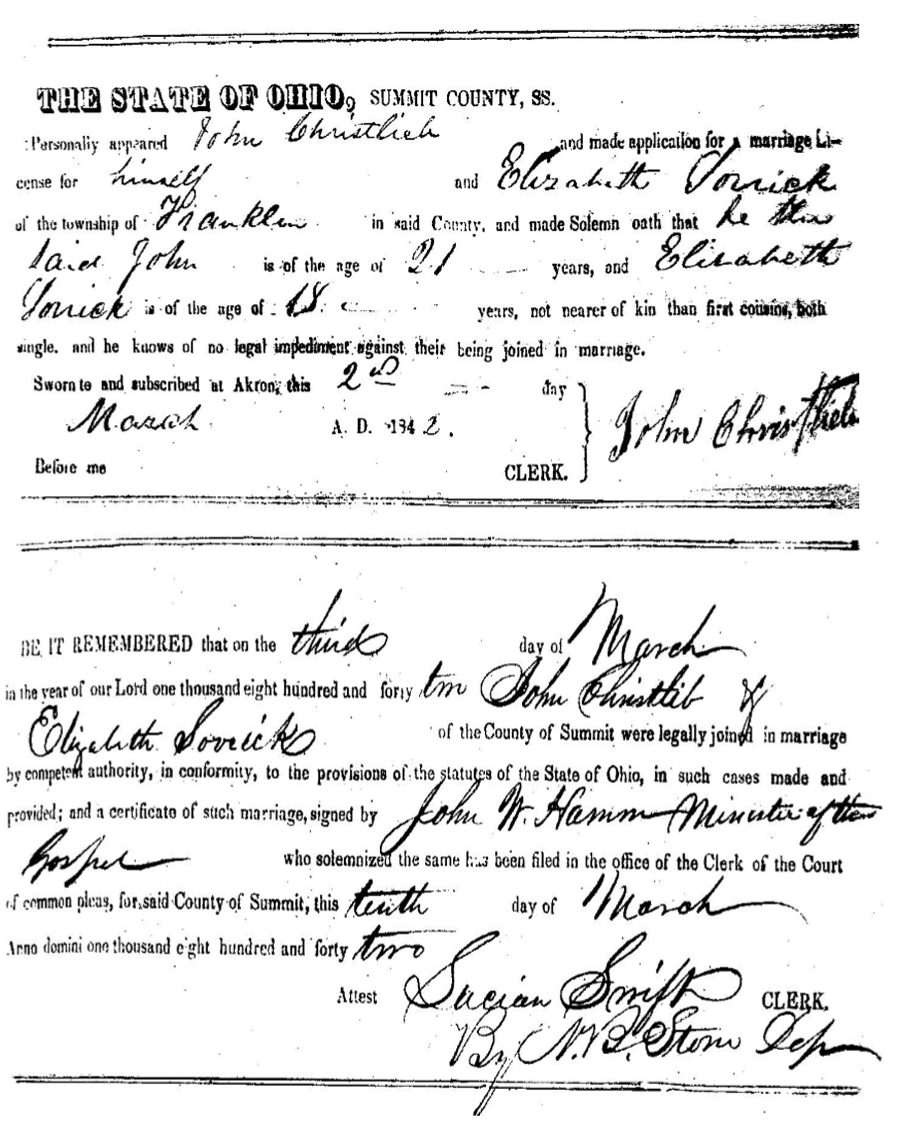 THE STATE OF OHIO, SUMMIT COUNTY, SS.
Personally appeared John Christlieb and made application for a marriage Li-
cense for himself and Elizabeth Sorrick
of the township of Franklin in said County, and made Solemn oath that he the
said John is of the age of 21 years, and Elizabeth
Sorrick is of the age of 18 years, not nearer of kin than first cousins, both
single, and he knows of no legal impediment against their being joined in marriage.
Sworn to and subscribed at Akron, this 2nd day
March A. D. 1842.
John Christlieb
Before me CLERK.
BE IT REMEMBERED that on the third day of March
in the year of our Lord one thousand eight hundred and forty two John Christlib &
Elizabeth Sorrick of the County of Summit were legally joined in marriage
by competent authority, in conformity, to the provisions of the statutes of the State of Ohio, in such cases made and
provided; and a certificate of such marriage, signed by John W. Hamm Minister of the
Gospel who solemnized the same has been filed in the office of the Clerk of the Court
of common pleas, for said County of Summit, this tenth day of March
Anno domini one thousand eight hundred and forty two
Attest Lucian Swift CLERK.
By N. B. Stone Dep